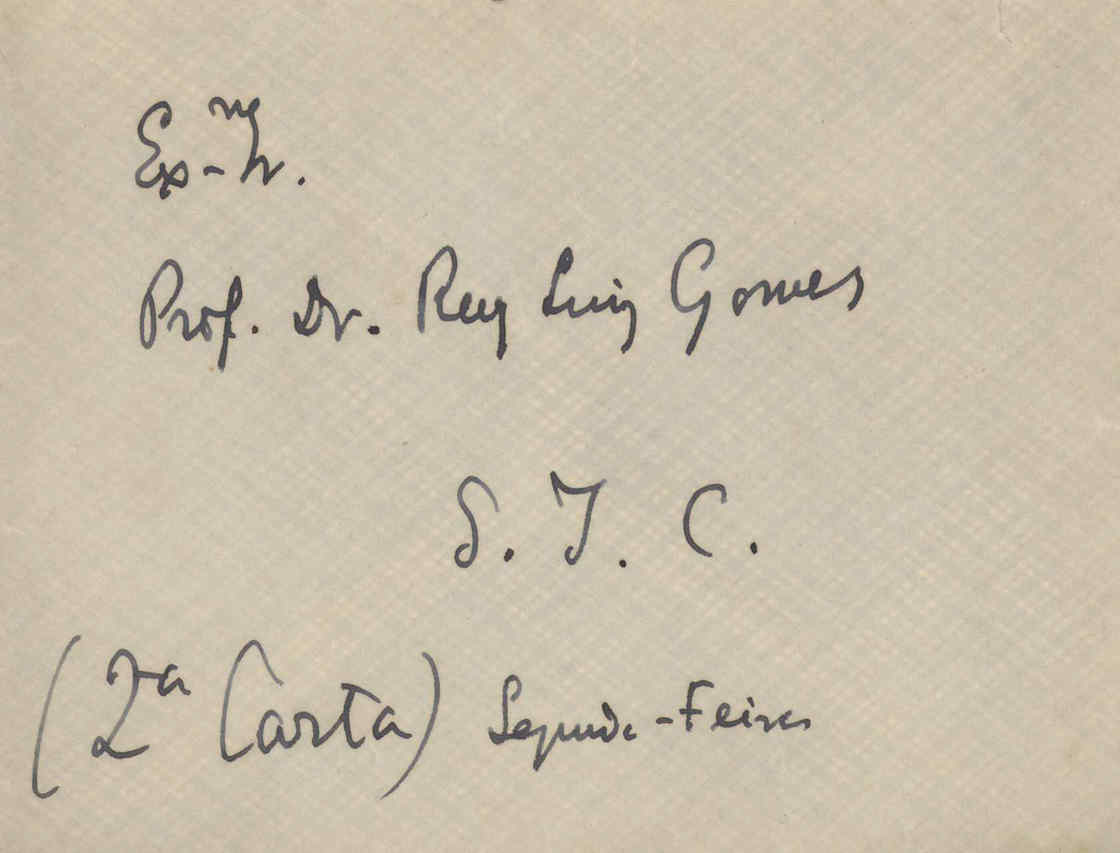 Ex-mo Sr.
Prof. Dr. Ruy Luiz Gomes
S. T. C.
(2a Carta) Segunda-Feira